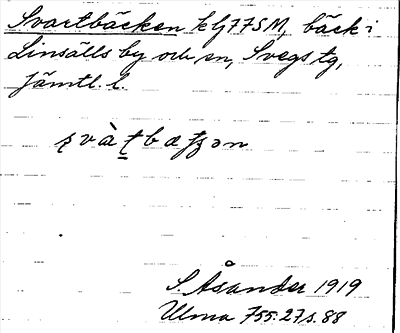 Svartbäcken klj77SM, bäck i
Linsälls by och sn, Svegs tg,
Jämtl. l.
svàtbætʃən
S. Åsander 1919
Ulma 755:27 s. 88